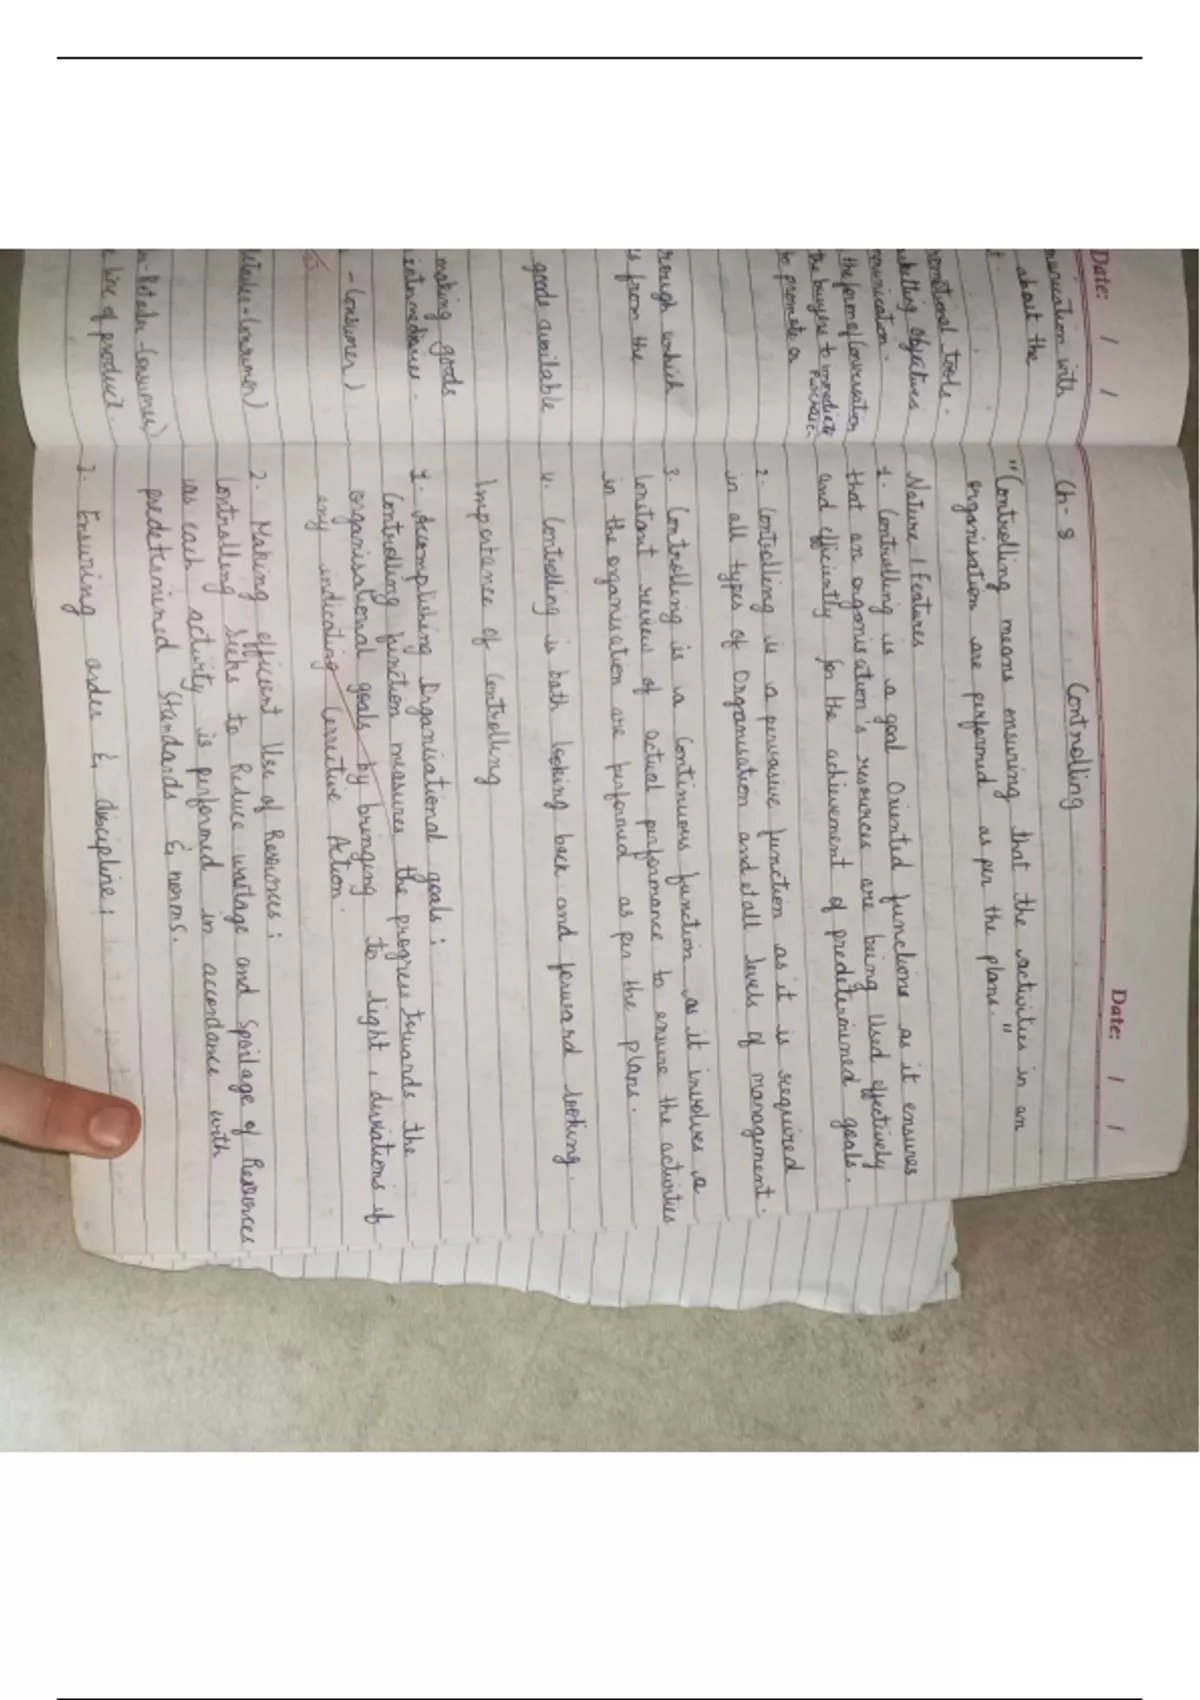 Date: / /
nunication with
about the
t.
romotional tools.
Objectives
munication.
the form of Conversation
the buyers to immediate
purchase.
to promote or
rough which
s from the
goods available
making goods
intermediaries.
-Consumer)
etailer-Consumer)
r-Retailer-Consumer)
e line of product
Date: / /
Ch-8 Controlling
"Controlling means ensuring that the activities in an
organisation are performed as per the plans."
Nature / Features
1. Controlling is a goal Oriented functions as it ensures
that an organisation's resources are being Used effectively
and efficiently for the achievement of predetermined goals.
2. Controlling is a pervasive function as it is required
in all types of Organisation and at all levels of management.
3. Controlling is a Continuous function as it involves a
Constant review of actual performance to ensure the activities
in the organisation are performed as per the plans.
4. Controlling is both looking back and forward looking.
Importance of Controlling
1. Accomplishing Organisational goals:
Controlling function measures the progress towards the
organisational goals by bringing to light, deviations if
any indicating Corrective Action.
2. Making efficient Use of Resources:
Controlling Seeks to Reduce wastage and Spoilage of Resources
as each activity is performed in accordance with
predetermined Standards & norms.
3. Ensuring order & discipline: